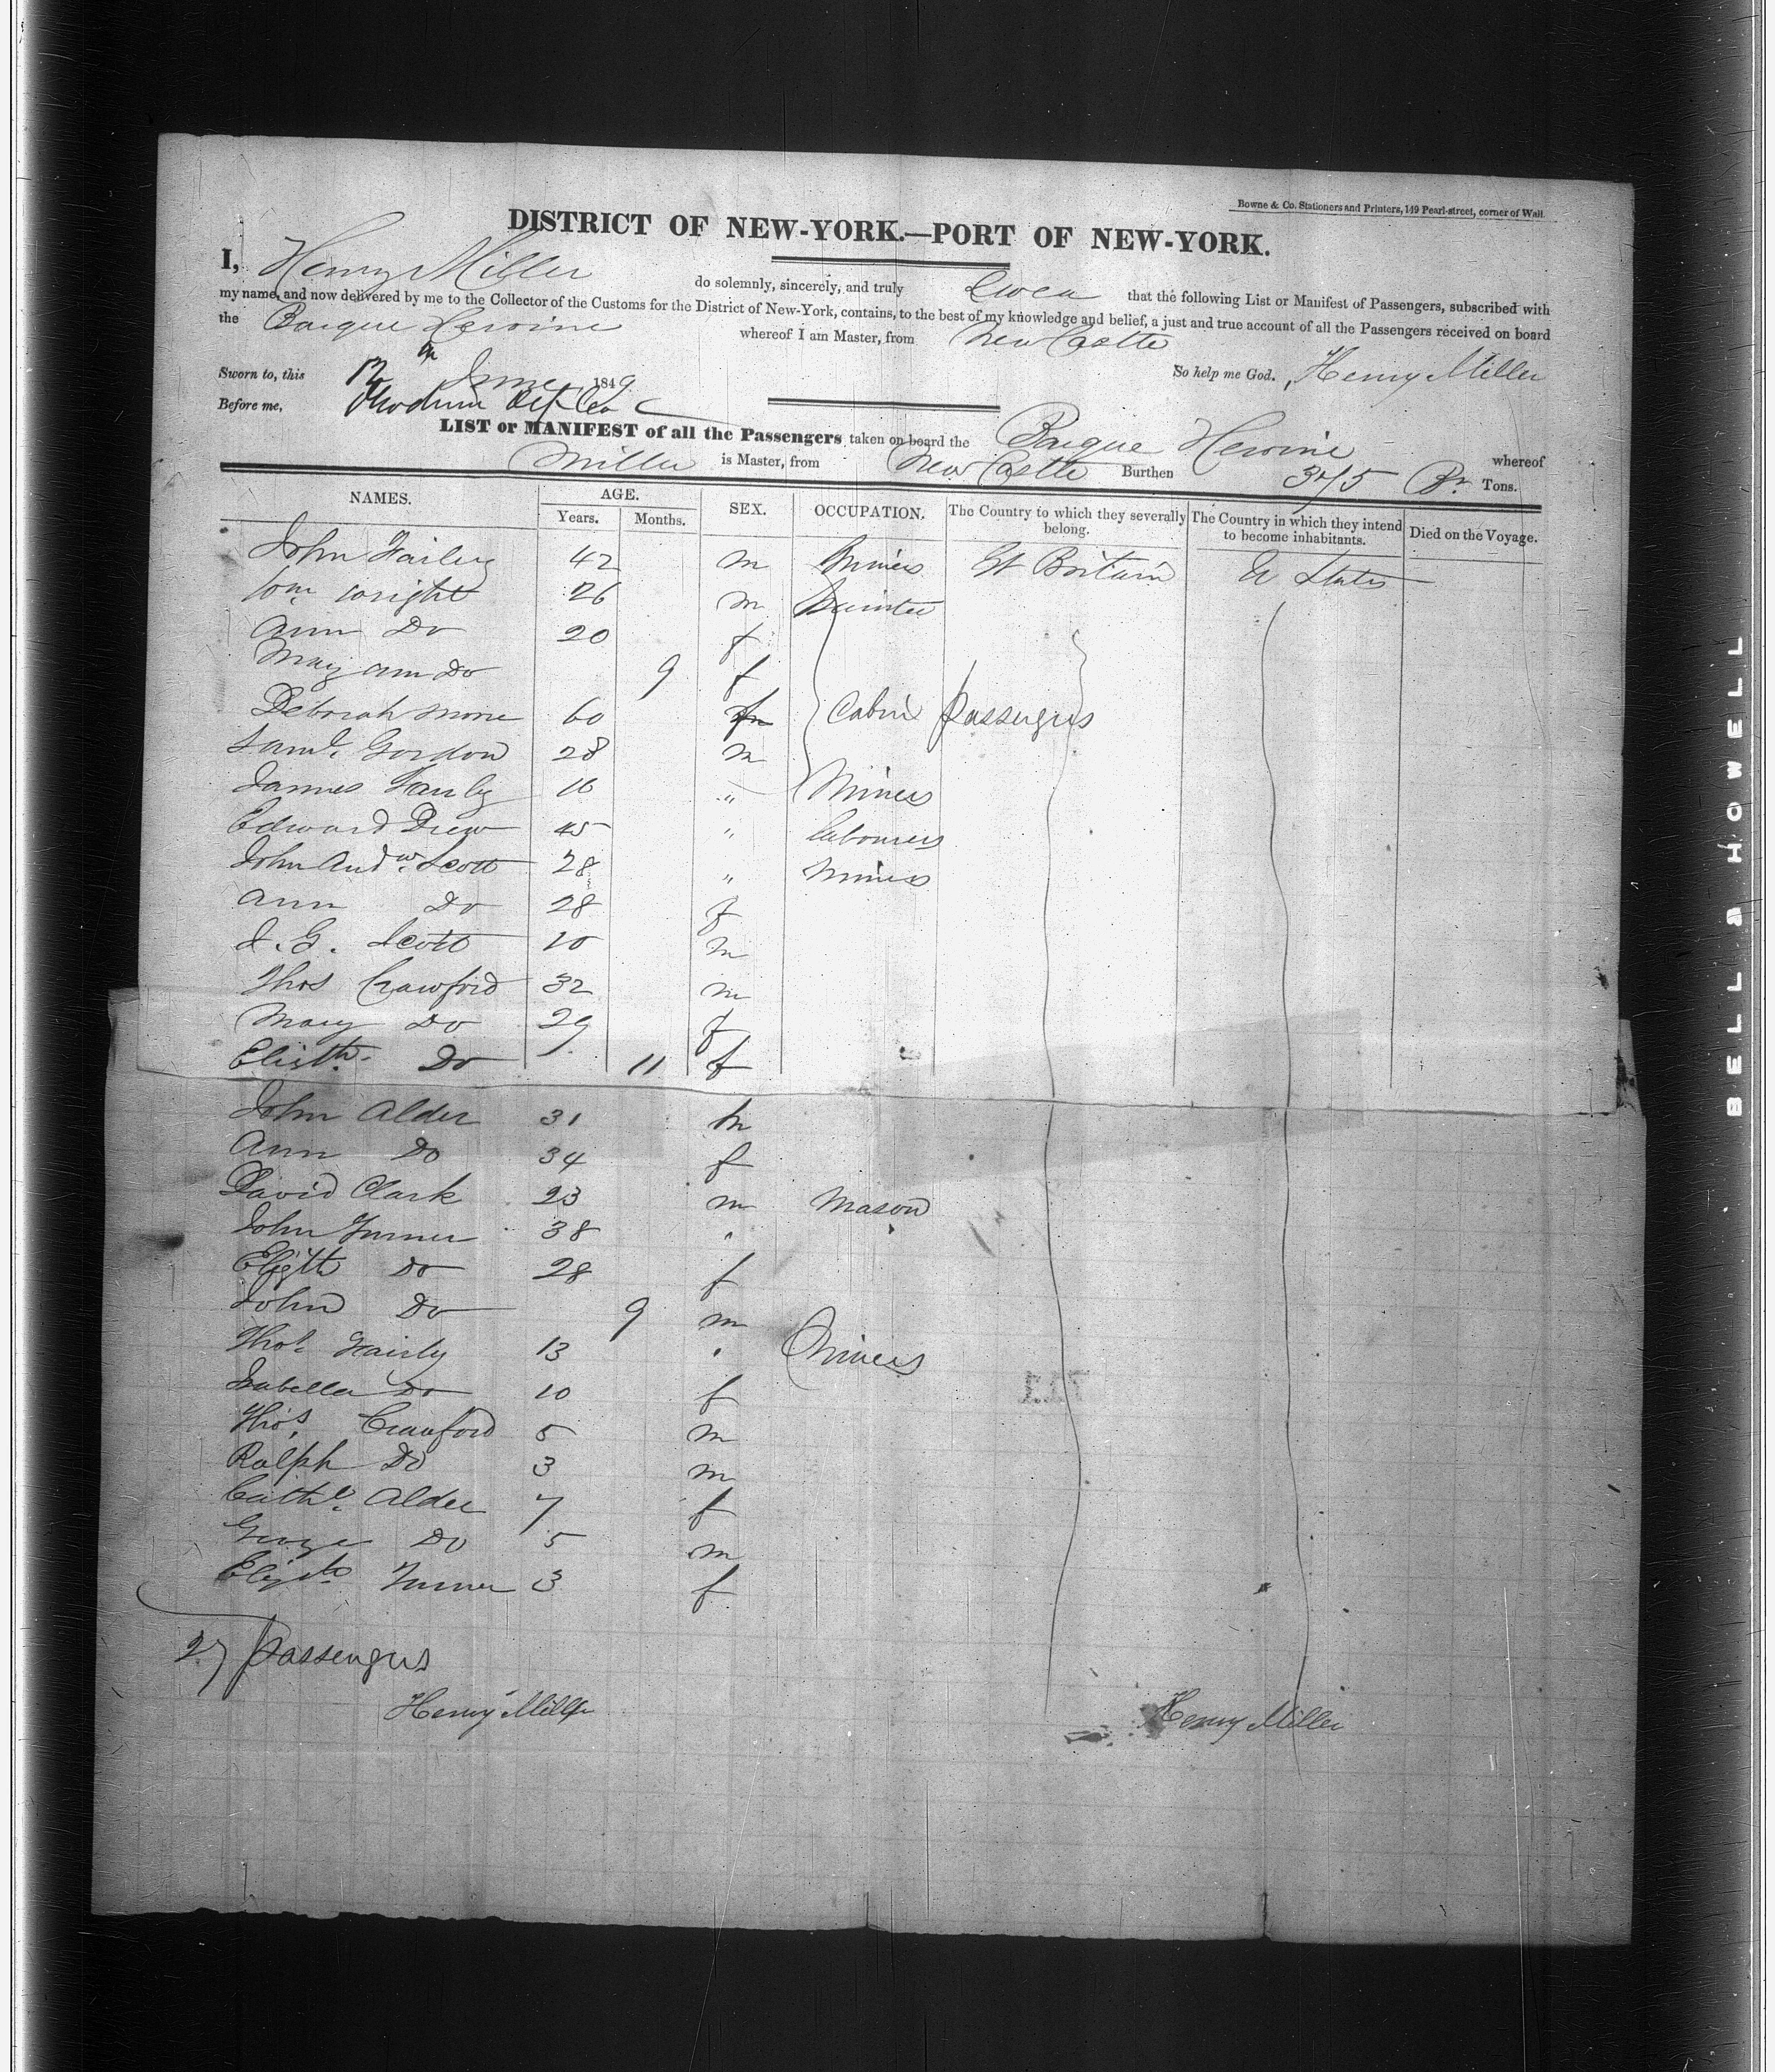 Bowne & Co. Stationers and Printers, 149 Pearl-street, corner of Wall.
DISTRICT OF NEW-YORK.—PORT OF NEW-YORK.
I, Henry Miller do solemnly, sincerely, and truly Swear that the following List or Manifest of Passengers, subscribed with
my name, and now delivered by me to the Collector of the Customs for the District of New-York, contains, to the best of my knowledge and belief, a just and true account of all the Passengers received on board
the Barque Heroine whereof I am Master, from New Castle
Sworn to, this 12 th June 1849. So help me God. Henry Miller
Before me,
LIST or MANIFEST of all the Passengers taken on board the Barque Heroine whereof
Miller is Master, from New Castle Burthen 375 Br Tons.
NAMES. AGE. SEX. OCCUPATION. The Country to which they severally belong. The Country in which they intend to become inhabitants. Died on the Voyage.
Years. Months.
John Fairley 42 m Miners Gt Britain U States
Wm Wright 26 m
Ann Do 20 f
Mary Ann Do 9 f
Deborah 60 f Cabin Passengers
Saml. Gordon 28 m
James Fairly 16 " Miners
Edward Drew 45 " labourers
John Andw. Scott 28 " Miners
Ann Do 28 f
J. G. Scott 10 m
Thos Crawford 32 m
Mary Do 29 f
Elizth. Do 11 f
John Alder 31 m
Ann Do 34 f
David Clark 23 m Mason
John Turner 38 "
Elizth Do 28 f
John Do 9 m
Thos. Fairly 13 " Miners
Isabella Do 10 f
Thos. Crawford 5 m
Ralph Do 3 m
Cathe. Alder 7 f
George Do 5 m
Elizth Turner 3 f
27 Passengers
Henry Miller Henry Miller
BELL & HOWELL